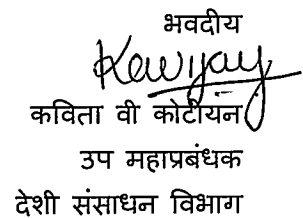 भवदीय
कविता वी कोटीयन
उप महाप्रबंधक
देशी संसाधन विभाग